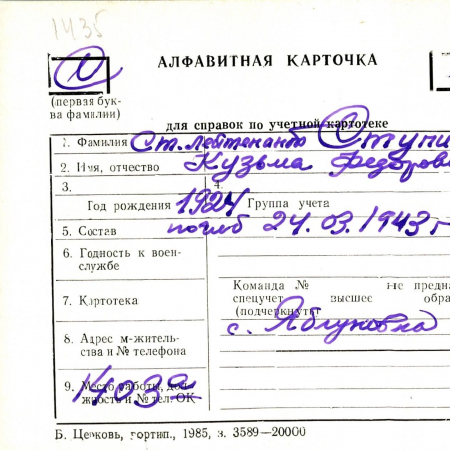 1435
АЛФАВИТНАЯ КАРТОЧКА
(первая бук-
ва фамилии)
для справок по учетной картотеке
1. Фамилия Ст. лейтенант Ступи
2. Имя, отчество Кузьма Федоров
3. 4.
Год рождения 1924 Группа учета
5. Состав погиб 24.03.1943 г
6. Годность к воен-
службе
Команда № Не предна
7. Картотека спецучет высшее обра
(подчеркнуть)
8. Адрес м-житель-
ства и № телефона
с. Яблуновка
9. Место работы, дол-
жность и № тел. ОК
1403
Б. Церковь, гортип., 1985, з. 3589—20000